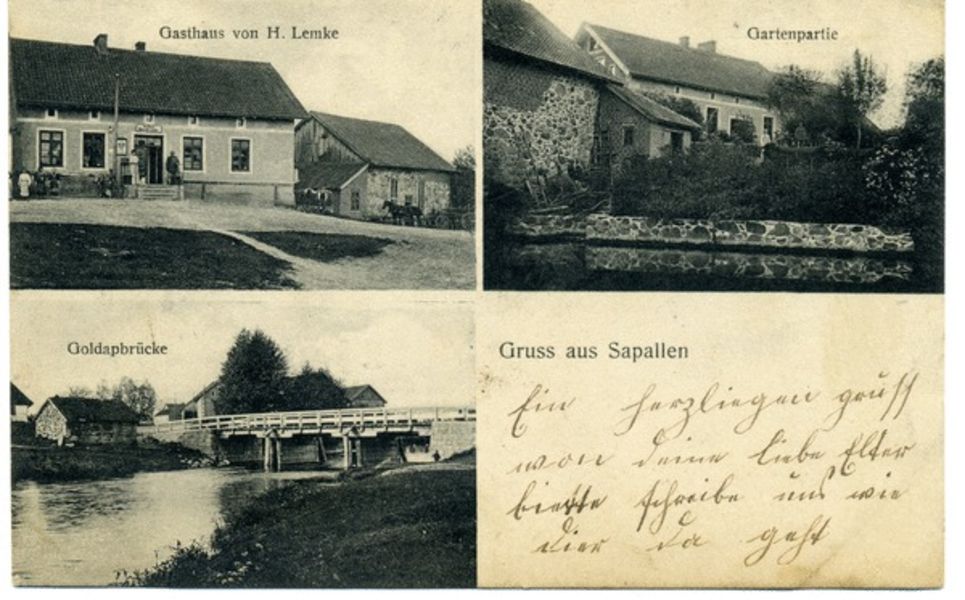 Gasthaus von H. Lemke
Gartenpartie
Goldapbrücke
Gruss aus Sapallen
Ein herzliegen gruss
won deine liebe Elter
biette schreibe uns wie
dier da geht